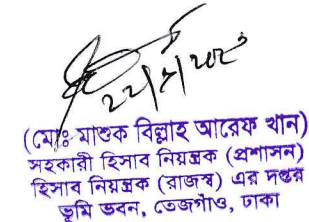 ২২/৭/২০২৩
(মোঃ মাশুক বিল্লাহ আরেফ খান)
সহকারী হিসাব নিয়ন্ত্রক (প্রশাসন)
হিসাব নিয়ন্ত্রক (রাজস্ব) এর দপ্তর
ভূমি ভবন, তেজগাঁও, ঢাকা